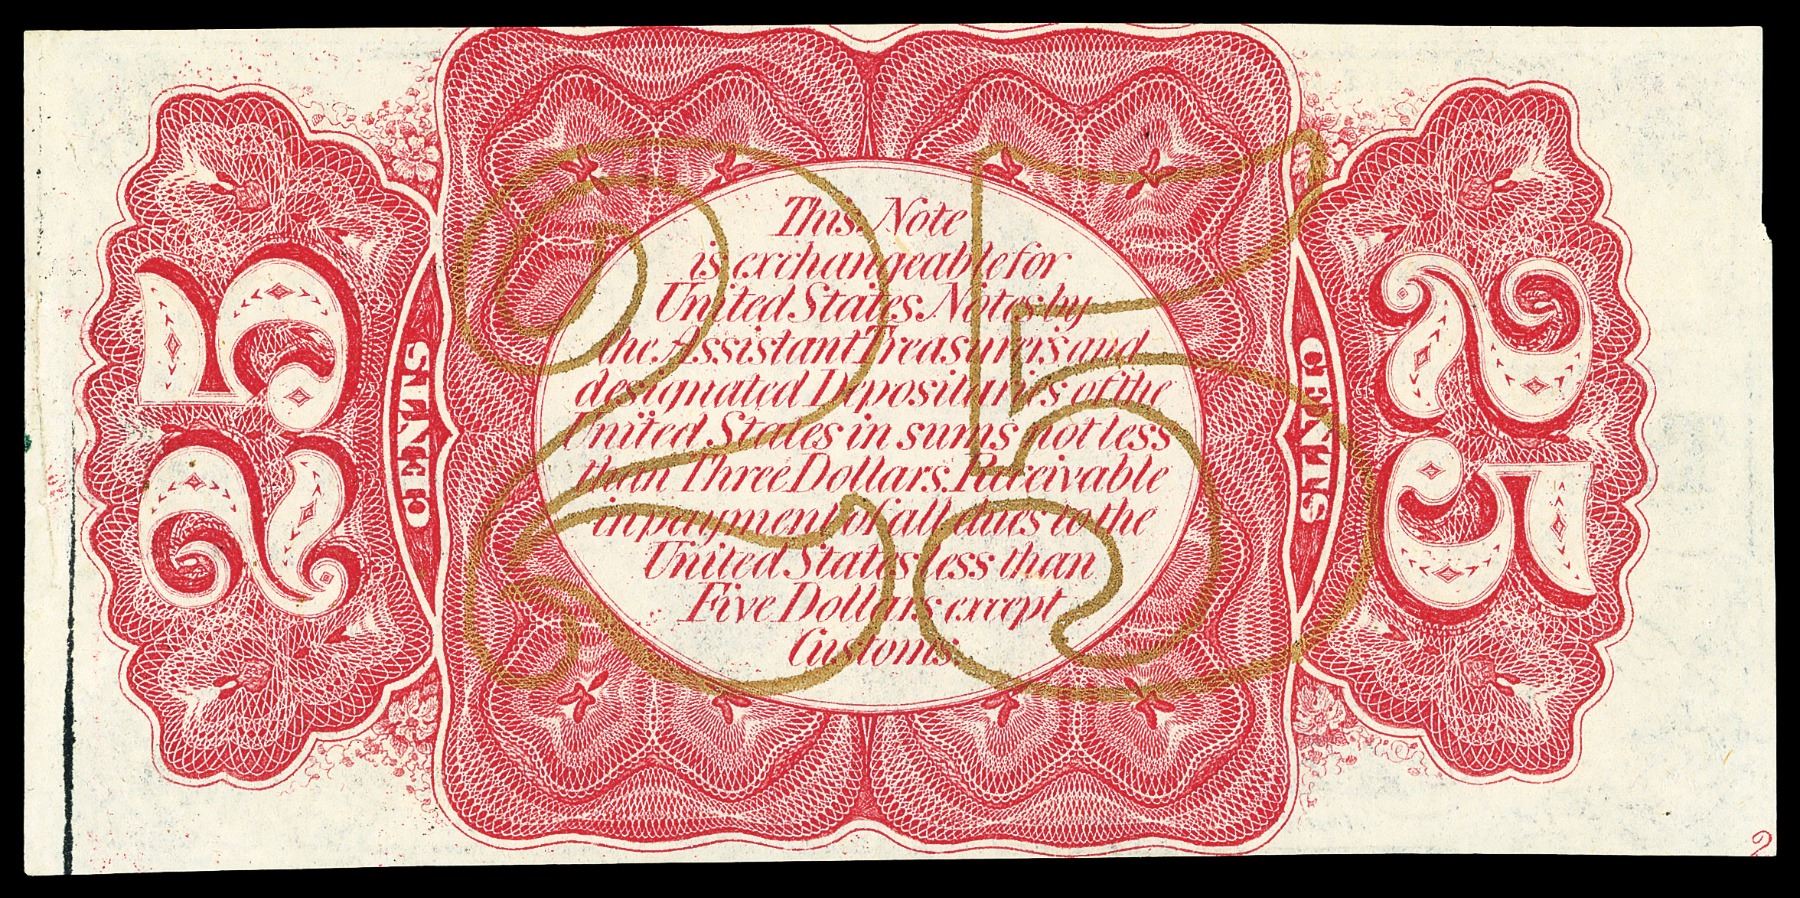 This Note
is exchangeable for
United States Notes by
the Assistant Treasurers and
designated Depositaries of the
United States in sums not less
than Three Dollars. Receivable
in payment of all dues to the
United States less than
Five Dollars except
Customs.
25
25
CENTS
25
CENTS
2